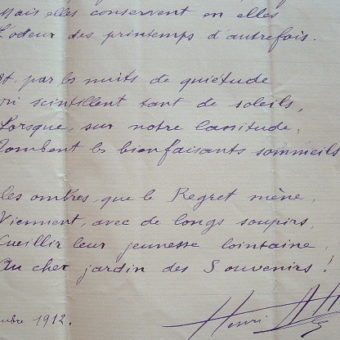 Mais elles conservent en elles
L'odeur des printemps d'autrefois.
Et par les nuits de quiétude
scintillent tant de soleils,
Lorsque, sur notre lassitude,
Tombent les bienfaisants sommeils
les ombres, que le Regret mène,
Viennent, avec de longs soupirs,
Cueillir leur jeunesse lointaine
Au cher jardin des Souvenirs !
mbre 1912.
Henri